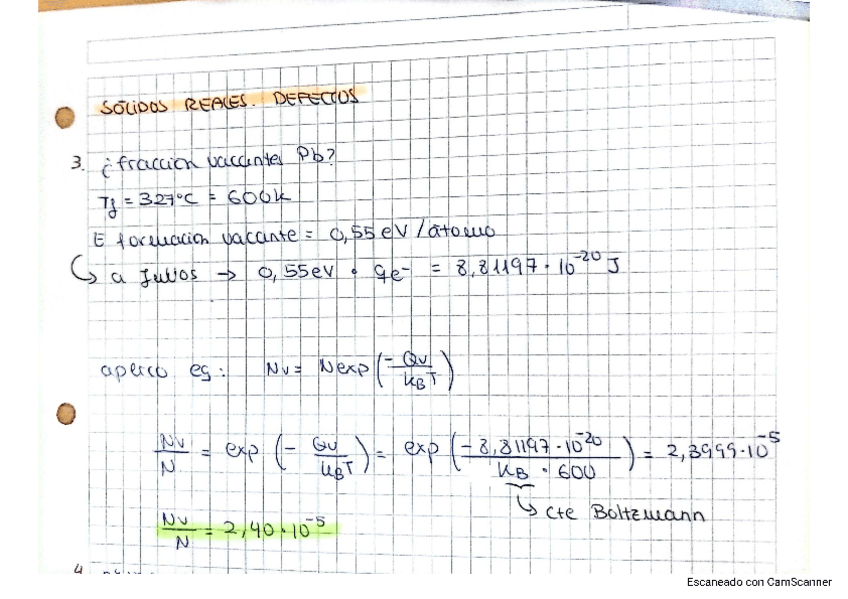 SÓLIDOS REALES. DEFECTOS
3. ¿fracción vacantes Pb?
Tf = 327°C = 600K
E formación vacante = 0,55 eV/átomo
↳ a Julios → 0,55eV · qe- = 8,81197·10^-20 J
aplico eq: Nv = N exp(-Qv/(kB T))
Nv/N = exp(-Qv/(kB T)) = exp(-8,81197·10^-20/(kB · 600)) = 2,3999·10^-5
↳ cte Boltzmann
Nv/N = 2,40·10^-5
4.
Escaneado con CamScanner